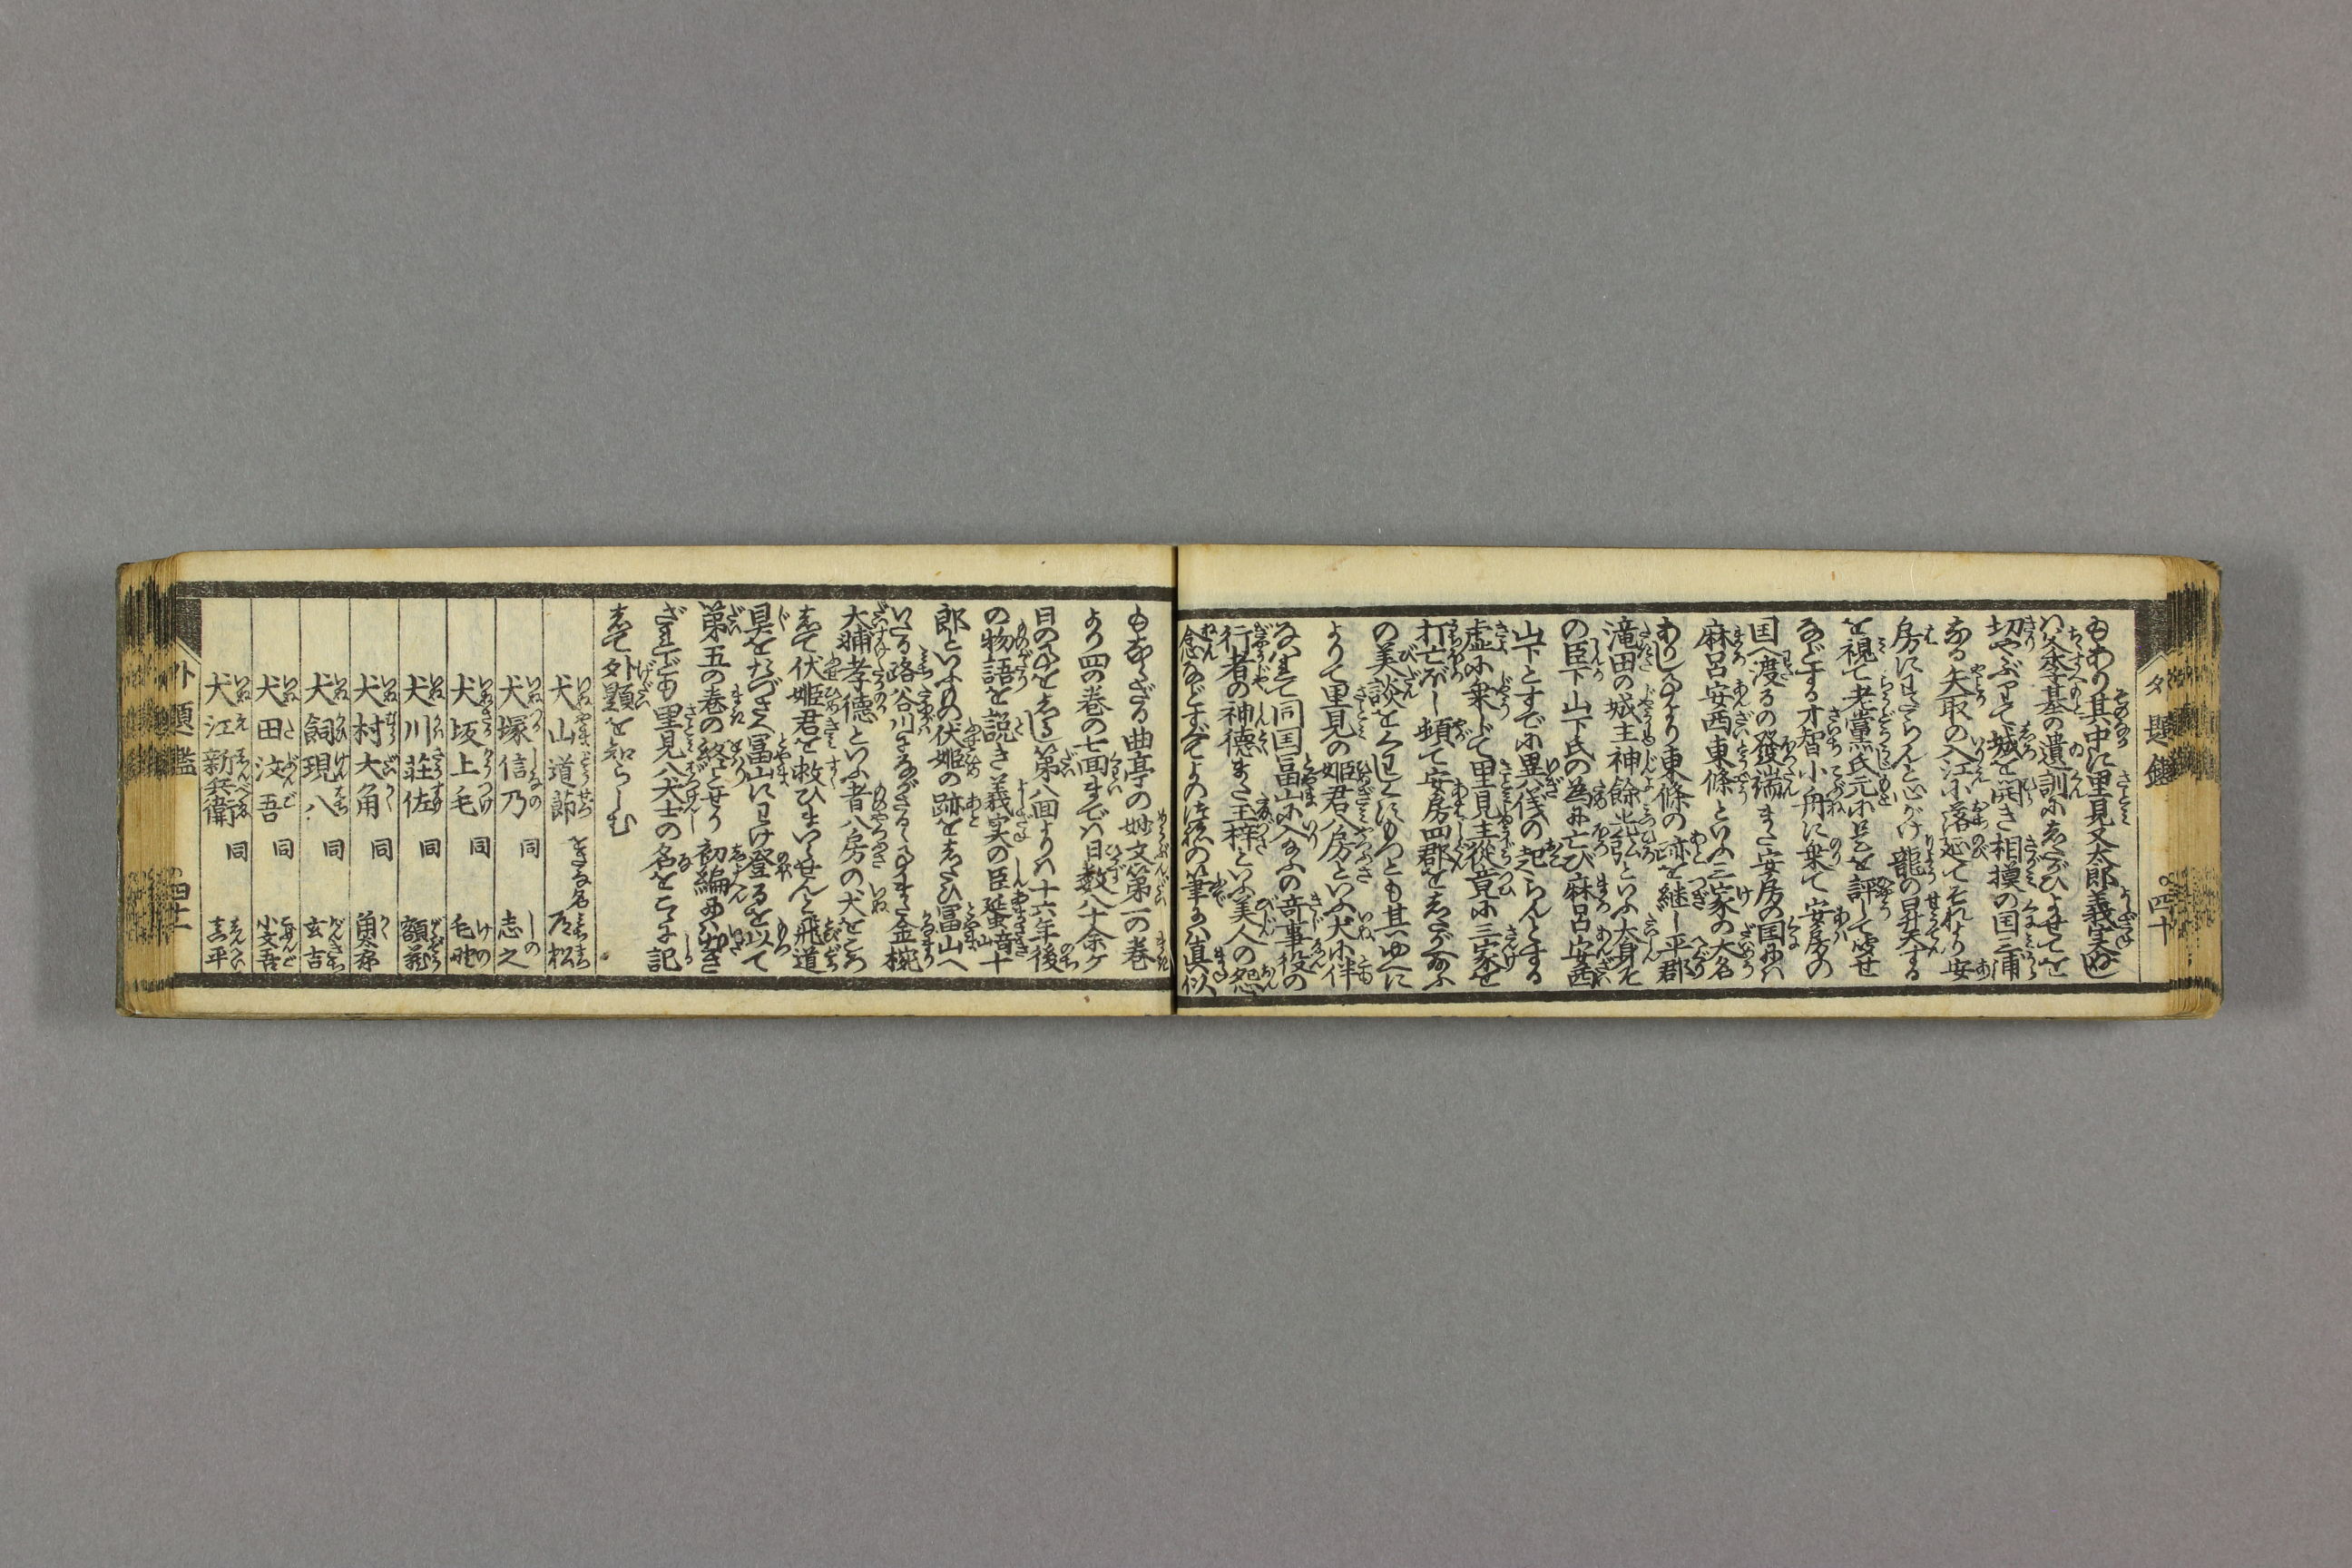 外題鑑 四十
もあり其中に里見又太郎義実の
ハ父季基の遺訓にしたがひよせてを
切やぶりて城を開き相摸の国三浦
なる矢取の入江に落延てそれより安
房にわたらんと心がけ龍の昇天する
を視て老黨氏元に是を評して
などする才智小舟に乗て安房の
国へ渡るの發端また安房の国にハ
麻呂安西東條といふ三家の大名
ありしより東條の跡を継し平郡
滝田の城主神餘光弘といふ大身
の臣下山下氏の為に亡び麻呂安西
山下とすでに異儀の起らんとする
虚に乗じて里見主従竟に三家を
打亡ぼし頓て安房四郡をしたがふ
の美談を
よりて里見の姫君八房といふ犬に伴
なはれて同国冨山に入るの竒事役の
行者の神徳また玉梓といふ美人の怨
念などすべての筆にハ真似
もならざる曲亭の妙文第一の巻
より四の巻の七囬までハ日数八十余ケ
日の事をしるし第八囬よりハ十六年後
の物語を説き義実の臣蜑崎十
郎といふもの伏姫の跡をしたひ冨山へ
いる路谷川にながさるゝ事また金椀
大輔孝徳といふ者八房の犬をころ
して伏姫君を救ひまいらせんと飛道
具をたづさへ冨山にわけ登るを以て
第五の巻の終とせり初編にハいまだ
ざれども里見八犬士の名をこゝに記
して外題を知らしむ
犬山道節 をさな名 道松
犬塚信乃 同 志之
犬坂上毛 同 毛野
犬川荘佐 同 額蔵
犬村大角 同 角
犬飼現八 同 玄吉
犬田汶吾 同 小文吾
犬江新兵衛 同 真平
外題鑑 四十一